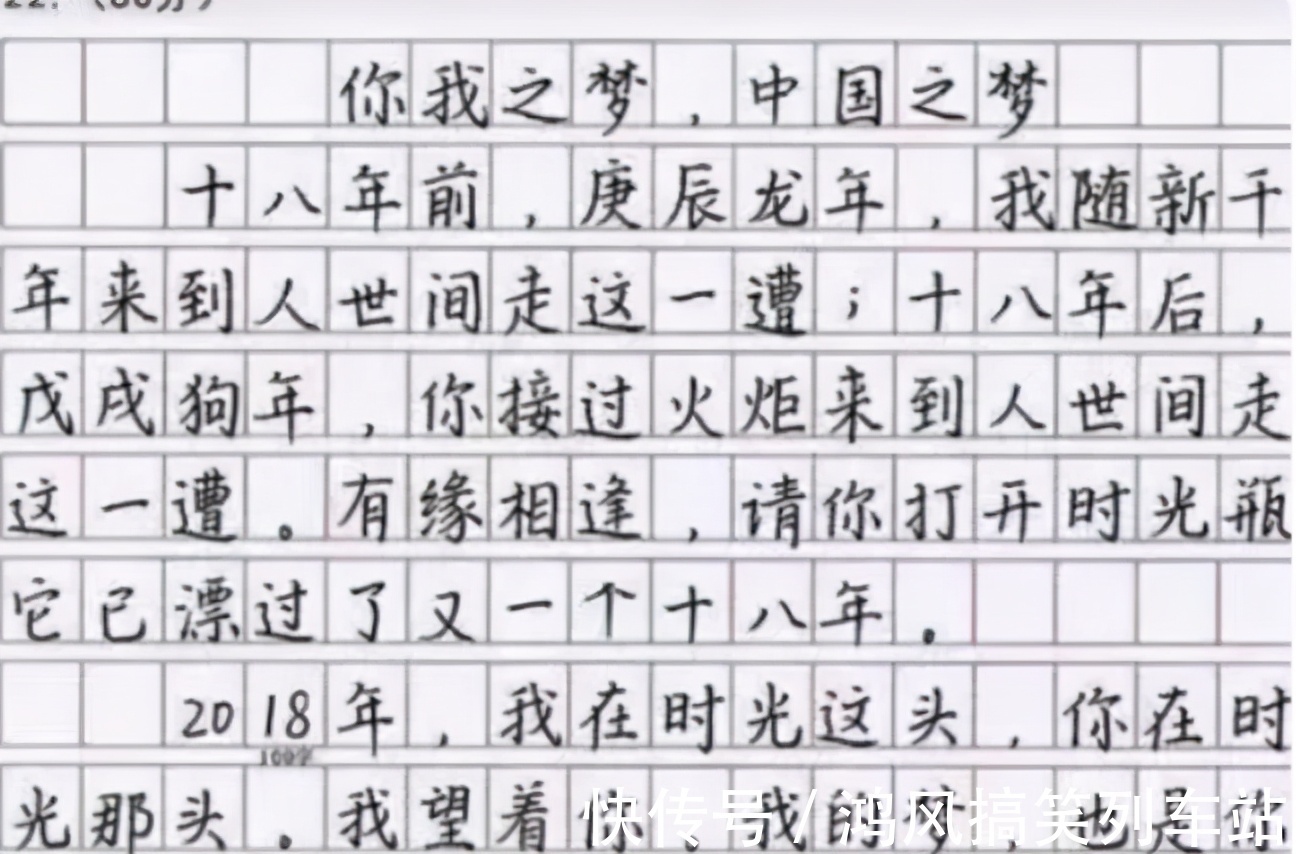 22.（60分）
你我之梦，中国之梦
十八年前，庚辰龙年，我随新千
年来到人世间走这一遭；十八年后，
戊戌狗年，你接过火炬来到人世间走
这一遭。有缘相逢，请你打开时光瓶
它已漂过了又一个十八年。
2018年，我在时光这头，你在时
100字
光那头。我望着你，我的梦，也是你
快传号/鸿风搞笑列车站